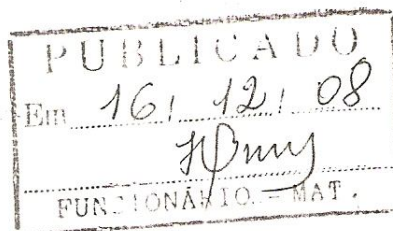 PUBLICADO
Em 16/ 12/ 08
FUNCIONÁRIO - MAT.